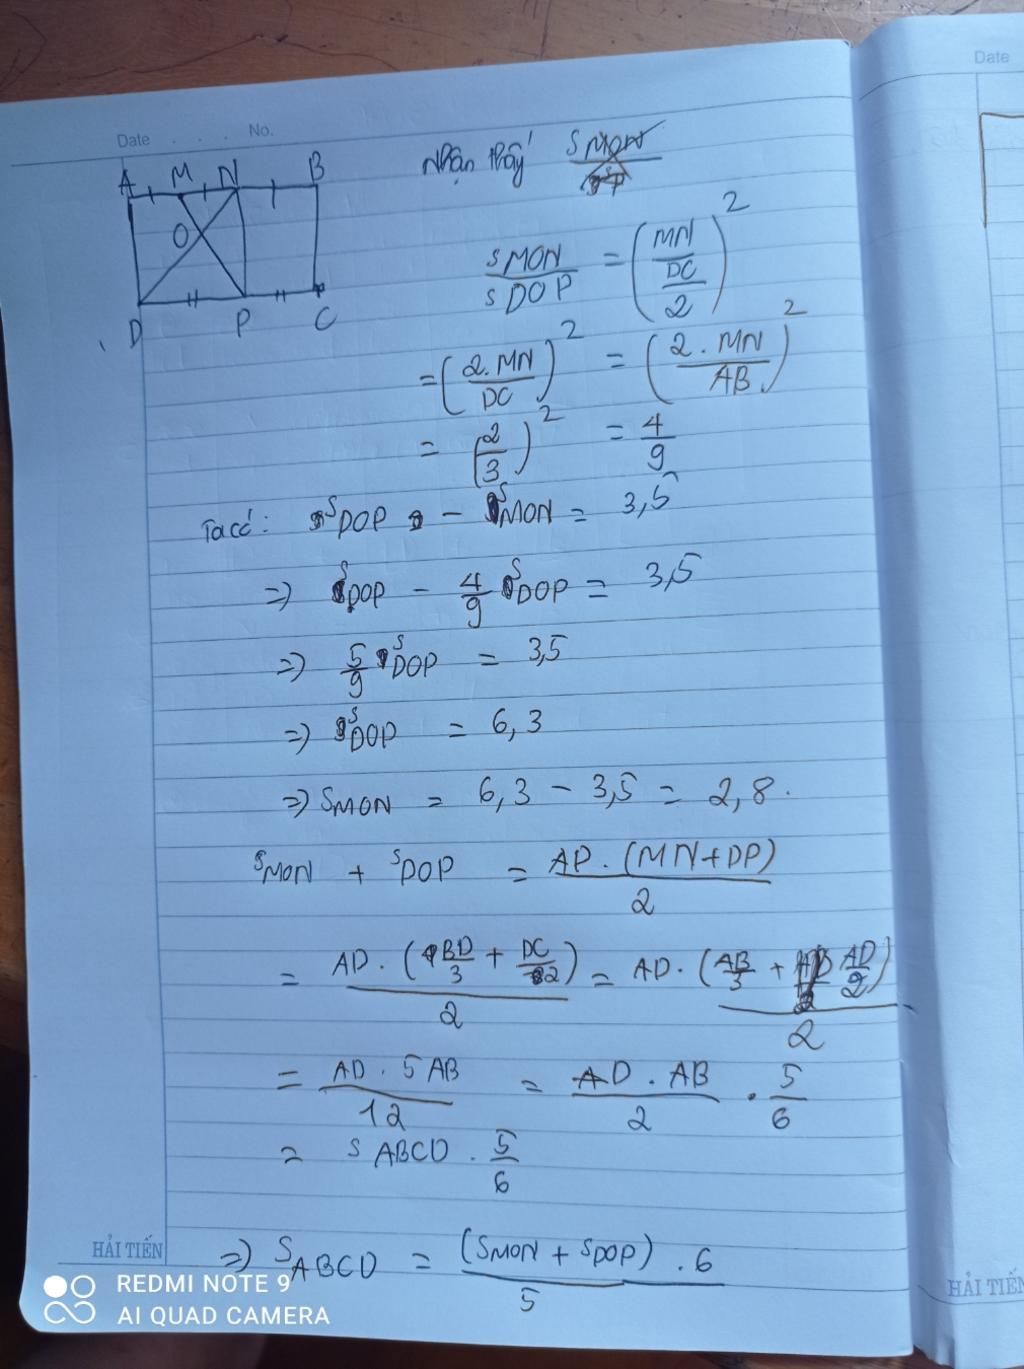 Date No.
Date
A M N B
O
D P C
Nhận thấy S MON
S MON / S DOP = (MN / (DC / 2))²
= (2.MN / DC)² = (2.MN / AB)²
= (2/3)² = 4/9
Ta có: S DOP - S MON = 3,5
=> S DOP - 4/9 S DOP = 3,5
=> 5/9 S DOP = 3,5
=> S DOP = 6,3
=> S MON = 6,3 - 3,5 = 2,8.
S MON + S DOP = AD.(MN+DP) / 2
= AD.(BD/3 + DC/2) / 2 = AD.(AB/3 + AD/2) / 2
= AD.5AB / 12 = AD.AB / 2 . 5/6
= S ABCD . 5/6
=> S ABCD = (S MON + S DOP).6 / 5
HẢI TIẾN
HẢI TIẾN
REDMI NOTE 9
AI QUAD CAMERA